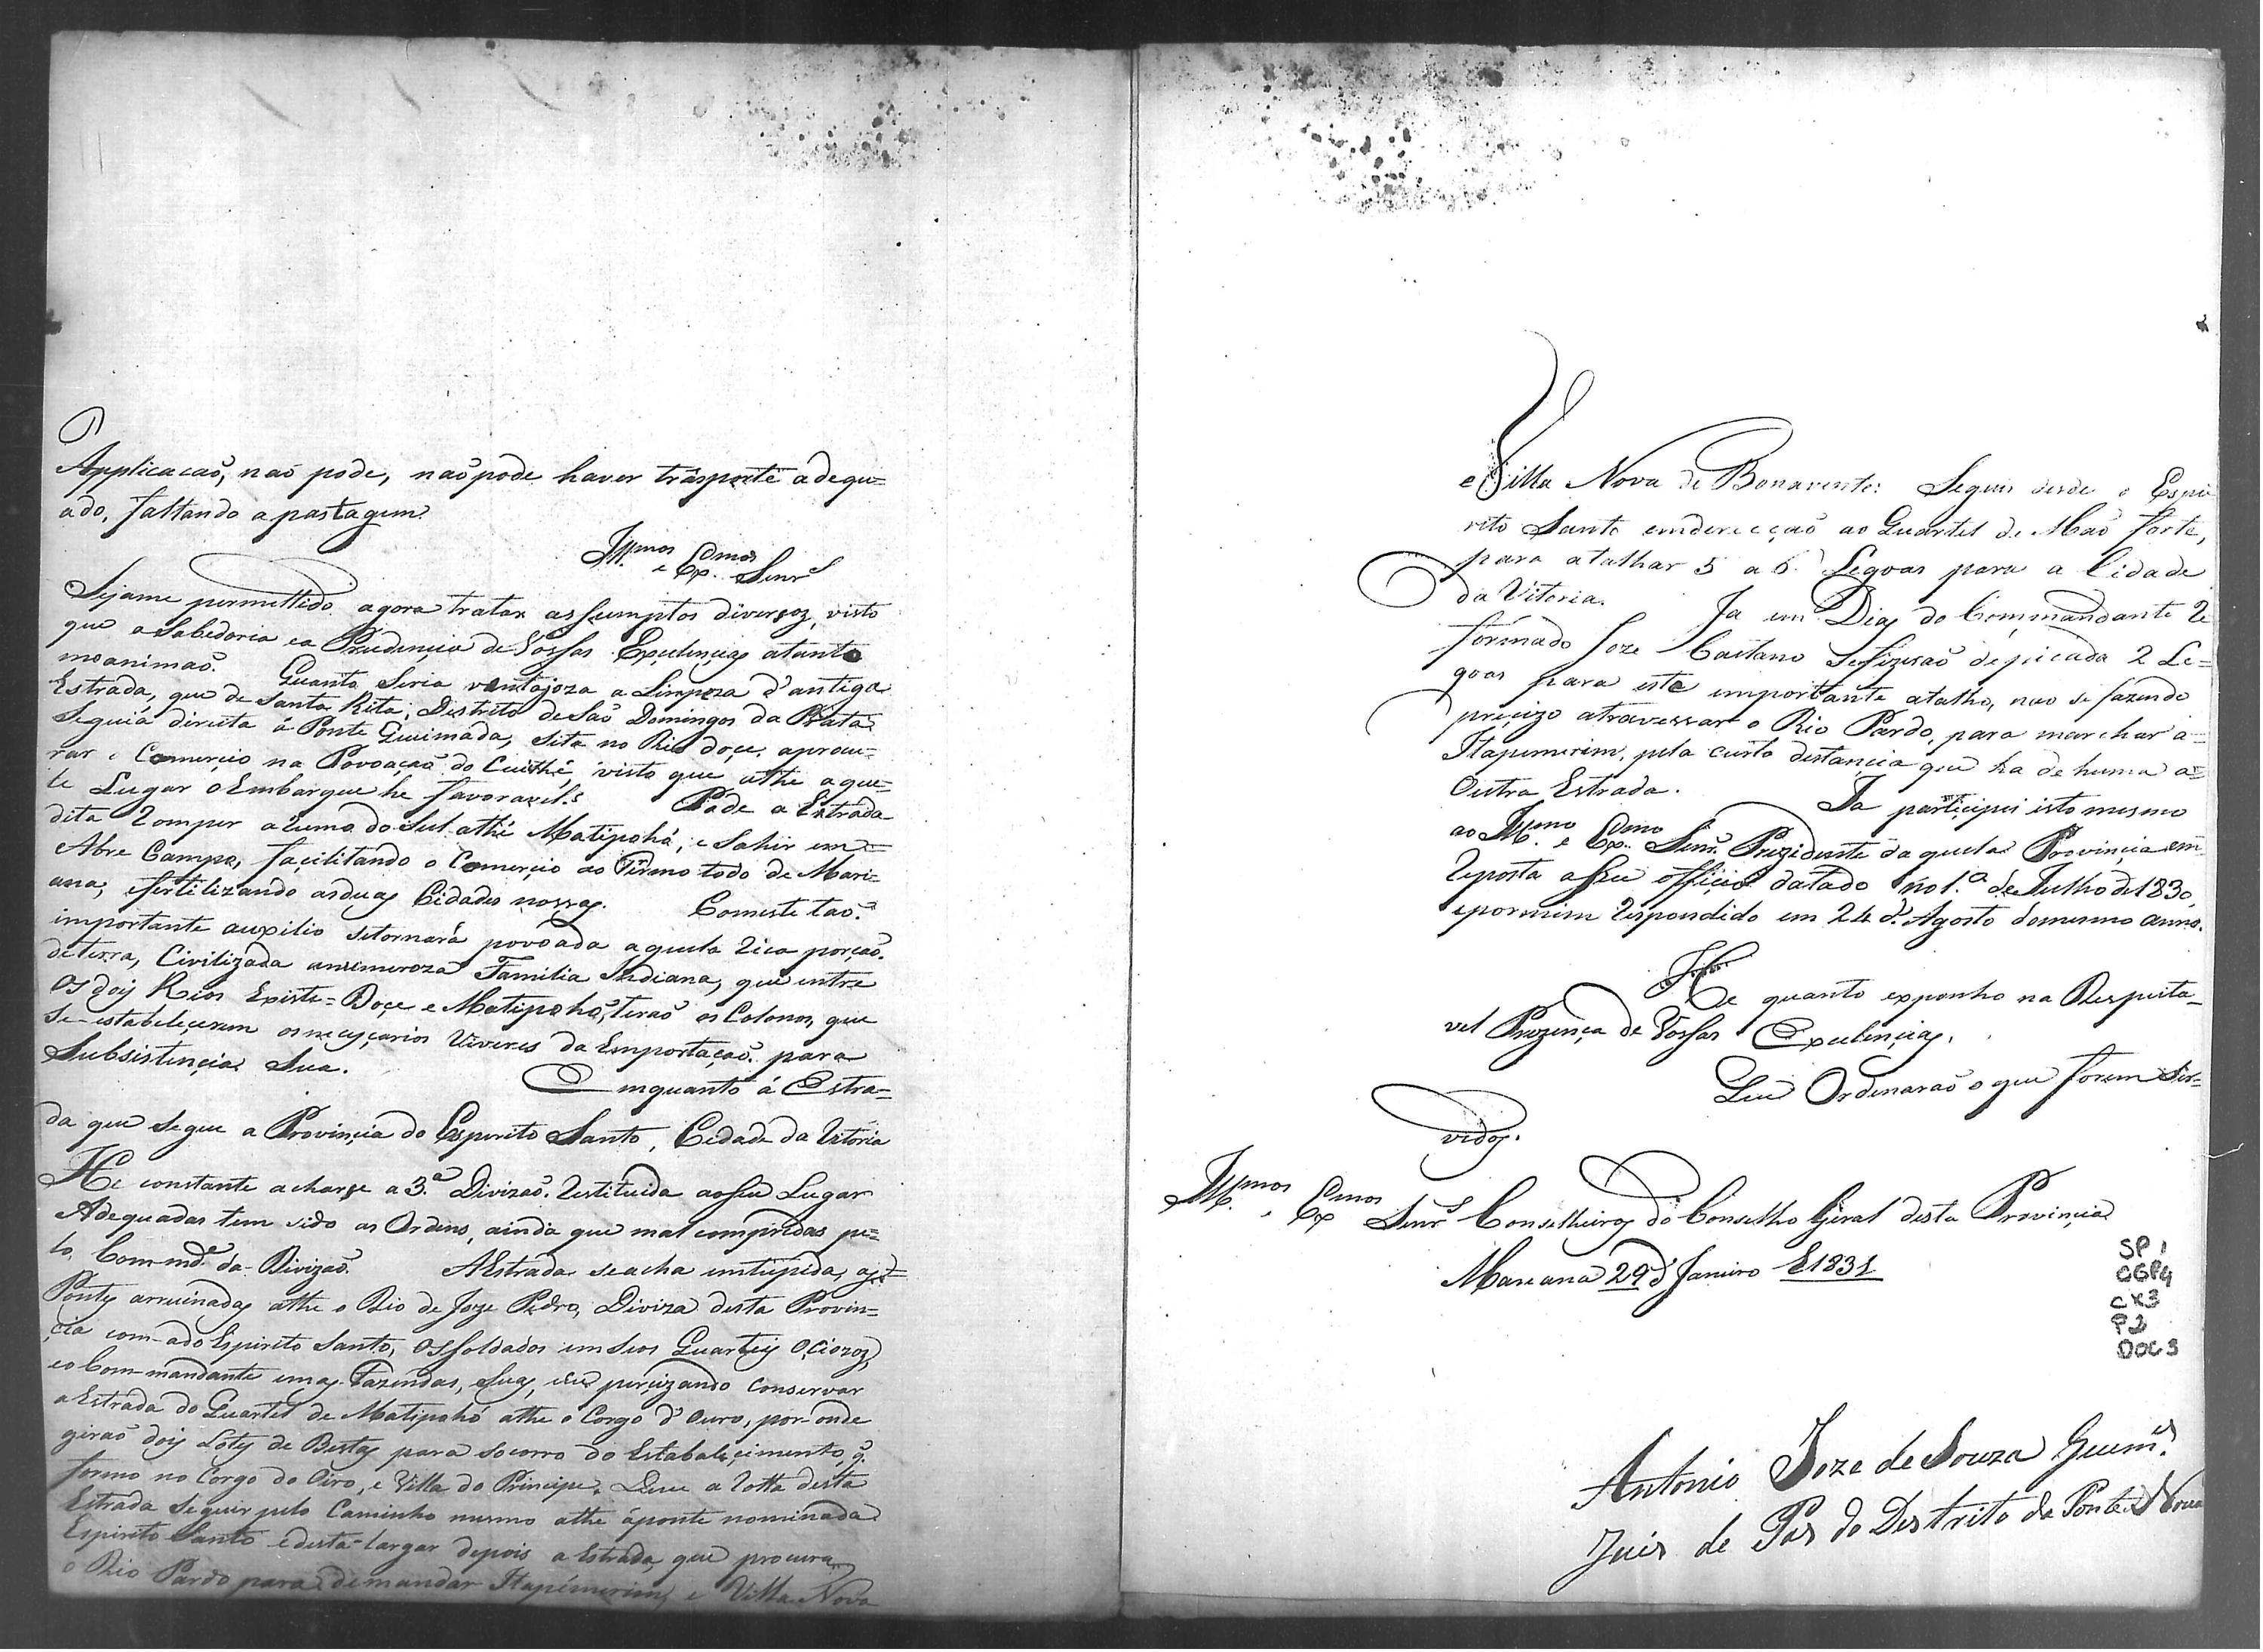 Applicacaõ, naõ pode, naõ pode haver trãsporte adequ=
ado, faltando apastagem.
Ill.mos e Ex.mos Senr.s
Sejame permettido agora tratar assumptos diversoz, visto
que a Sabedoria ea Prudençia de Vossas Exçelençias atanto
meanimaõ. Quanto Seria ventajoza a Limpeza d'antiga
Estrada, que de Santa Rita, Distrito de Saõ Domingos da Prata
Seguia direita á Ponte Queimada, sita no Rio doçe, aprou=
rar o Comerçio na Povoaçaõ do Cuithé, visto que athe aque=
le Lugar o Embarque he favoravel.
Pode a Estrada
dita Romper a Rumo do Sul athé Matipohó, e Sahir em=
Abre Campo, façilitando o Comerçio ao Têrmo todo de Mari=
ana, efertilizando asduas Cidades nossas. Comeste taõ
importante auxilio setornará povoada aquela Rica porçaõ
deterra, Civilizada anumeroza Familia Indiana, que entre
os dois Rios Existe= Doçe e Matipohó, teraõ os Colonos, que
Se-estabeleçerem osneçeçarios Viveres da Emportaçaõ para
Subsistençia Sua.
Emquanto á Estra=
da que segue a Provinçia do Espirito Santo, Cidade da Vitoria
He constante acharse a 3.ª Divizaõ Restituida aoseu Lugar
Adequadas tem sido as Ordens, ainda que mal compridas pe=
lo Com-md.e da Divizaõ. AEstrada seacha entupida, as=
Pontes arruinadas athe o Rio de Joze Pedro, Diviza desta Provin=
çia com-ado Espirito Santo, osSoldados em seos Quarteis Oçiozos,
eo Com-mandante emas Fazendas, Suas, perçizando conservar
a Estrada do Quartel de Matipohó athe o Corgo d'Ouro, por-onde
giraõ dois Lotes de Bestas para socorro do Estabaleçimento, q.
formo no Corgo do Oiro, e Villa do Prinçipe. Deve a Rotta desta
Estrada Seguir pelo Caminho mesmo athe áponte nominada
Espirito Santo edesta-largar depois a Estrada, que procura
o Rio Pardo para demandar Itapémerim, e Villa Nova
e Villa Nova de Bonavente: Seguir desde o Espi
rito Santo emderecçaõ ao Quartel de Maõ forte,
para atalhar 5 a 6 Legoas para a Cidade
da Vitoria. Ja em Dias do Commandante Re
formado Joze Caetano Sefizeraõ depicada 2 Le=
goas para este importante atalho, nao se fazendo
preçizo atravessar o Rio Pardo, para marchar a=
Itapemerim, pela curta destançia que ha de huma a=
Outra Estrada. Ja partiçipei isto mesmo
ao Ill.mo e Ex.mo Senr. Prezidente daquela Provinçia em
Reposta aSeu officio datado no 1.º de Julho de 1830,
epormim Respondido em 24 d'Agosto domesmo anno.
He quanto exponho na Respeita=
vel Prezença de Vossas Exçelençias.
Que Ordenaraõ o que forem Ser=
vidos.
Ill.mos e Ex.mos Senr.s Conselheiros do Conselho Géral desta Provinçia
Mareana 29 d'Janeiro E1831
SP 1
CGP4
CX3
P2
DOC 3
Antonio Joze de Souza Guim.es
Juis de Pas do Destrito da Ponte Nova